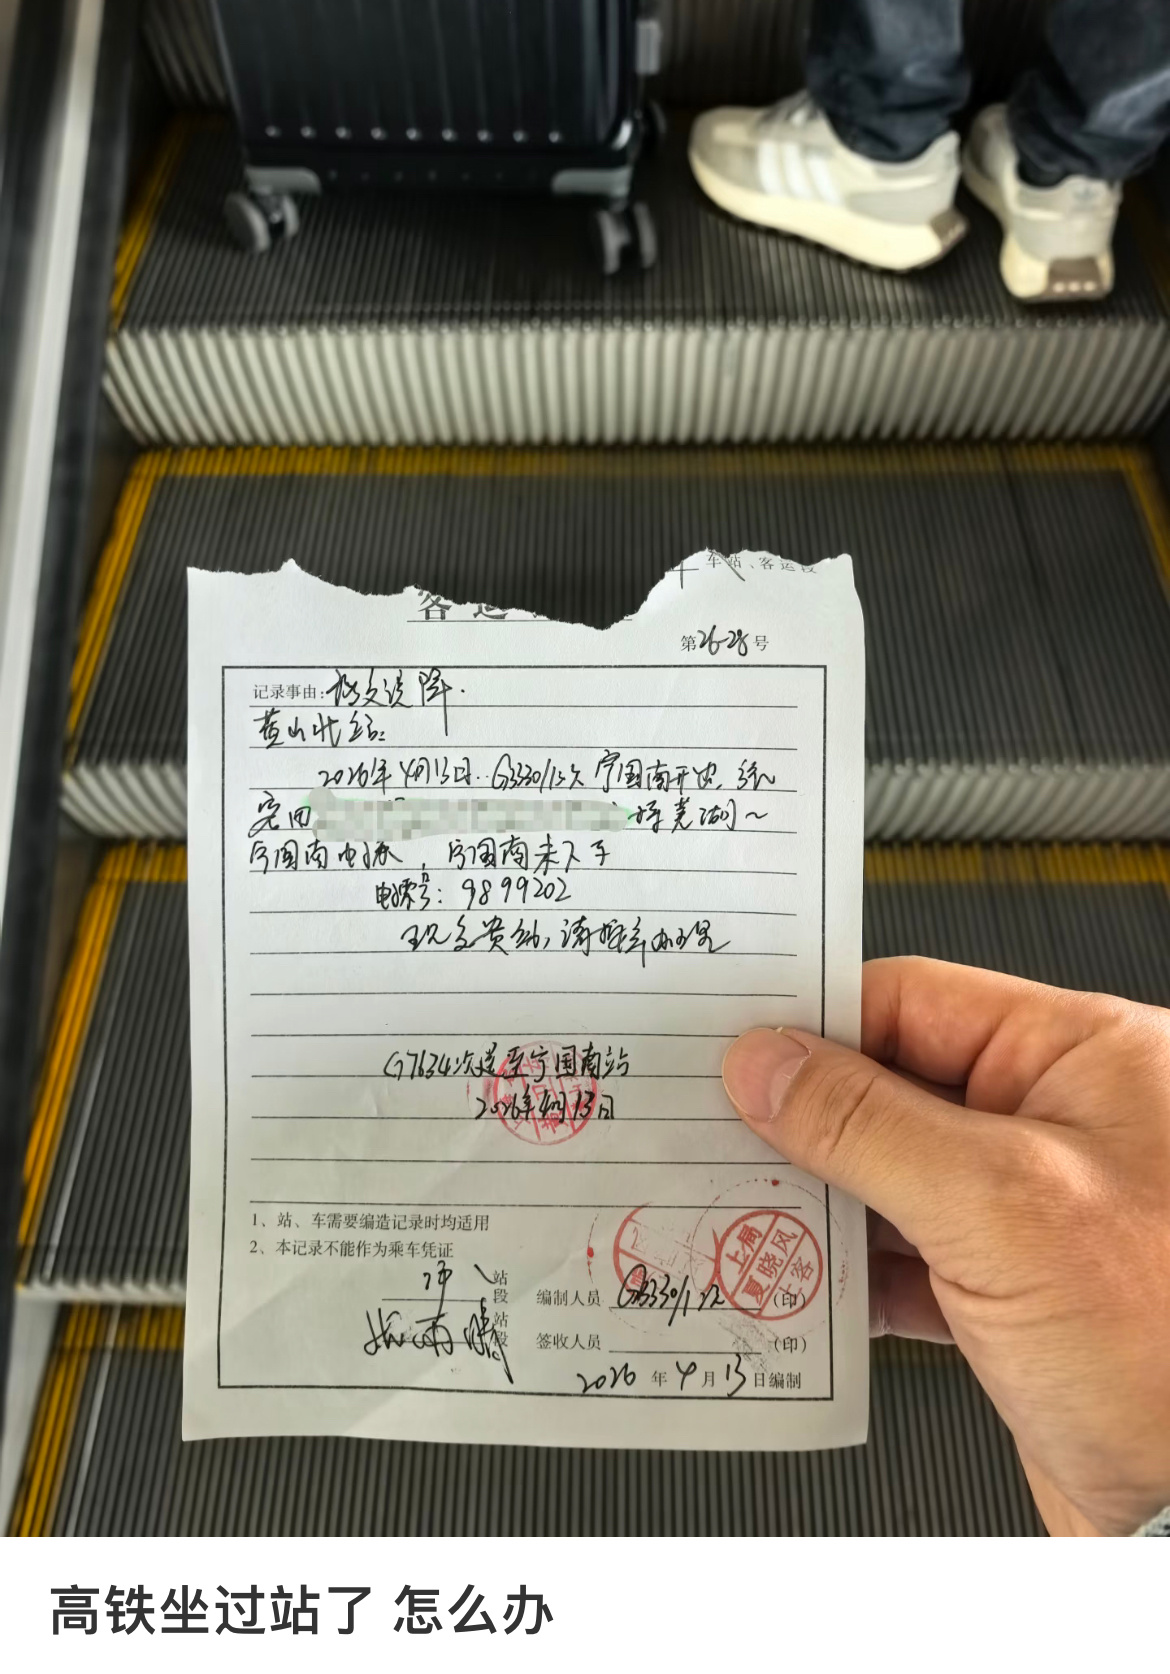 车站、客运段
客运
第26-28号
记录事由:移交误降.
黄山北站:
2026年4月13日..G3330/1次宁国南开出,
持芜湖~
宁国南电子票,宁国南未下车
电票号:9899202
现交贵站,请按章办理
G7634次送至宁国南站
2026年4月13日
1、站、车需要编造记录时均适用
2、本记录不能作为乘车凭证
站
段
编制人员 G3330/1次 (印)
上局
夏晓风
客
站
段
签收人员 (印)
2026 年 4 月 13 日编制
高铁坐过站了 怎么办